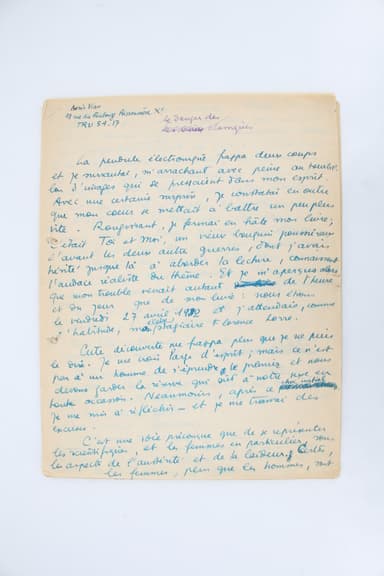 Boris Vian
98 rue du Faubourg Poissonnière Xe
TRU 54-17
Le danger des
classiques
La pendule électronique frappa deux coups
et je sursautai, m'arrachant avec peine au tourbil-
lon d'images qui se pressaient dans mon esprit.
Avec une certaine surprise, je constatai en outre
que mon coeur se mettait à battre un peu plus
vite. Rougissant, je fermai en hâte mon livre;
c'était Toi et Moi, un vieux bouquin poussiéreux
d'avant les deux autres guerres, dont j'avais
hésité jusque là à aborder la lecture, connaissant
l'audace réaliste du thème. Et je m'aperçus alors
que mon trouble venait autant de l'heure
et du jour que de mon livre : nous étions
le vendredi 27 avril 1982 et j'attendais, comme
d'habitude, ma stagiaire Florence Lorre.
Cette découverte me frappa plus que je ne puis
le dire. Je me crois large d'esprit; mais ce n'est
pas à un homme de s'éprendre le premier et nous
devons garder la réserve qui sied à notre sexe en
toute occasion. Néanmoins, après ce choc initial
je me mis à réfléchir - et je me trouvai des
excuses.
C'est une idée préconçue que de se représenter
les scientifiques, et les femmes en particulier, sous
les aspects de l'austérité et de la laideur. Certes,
les femmes, plus que les hommes, sont